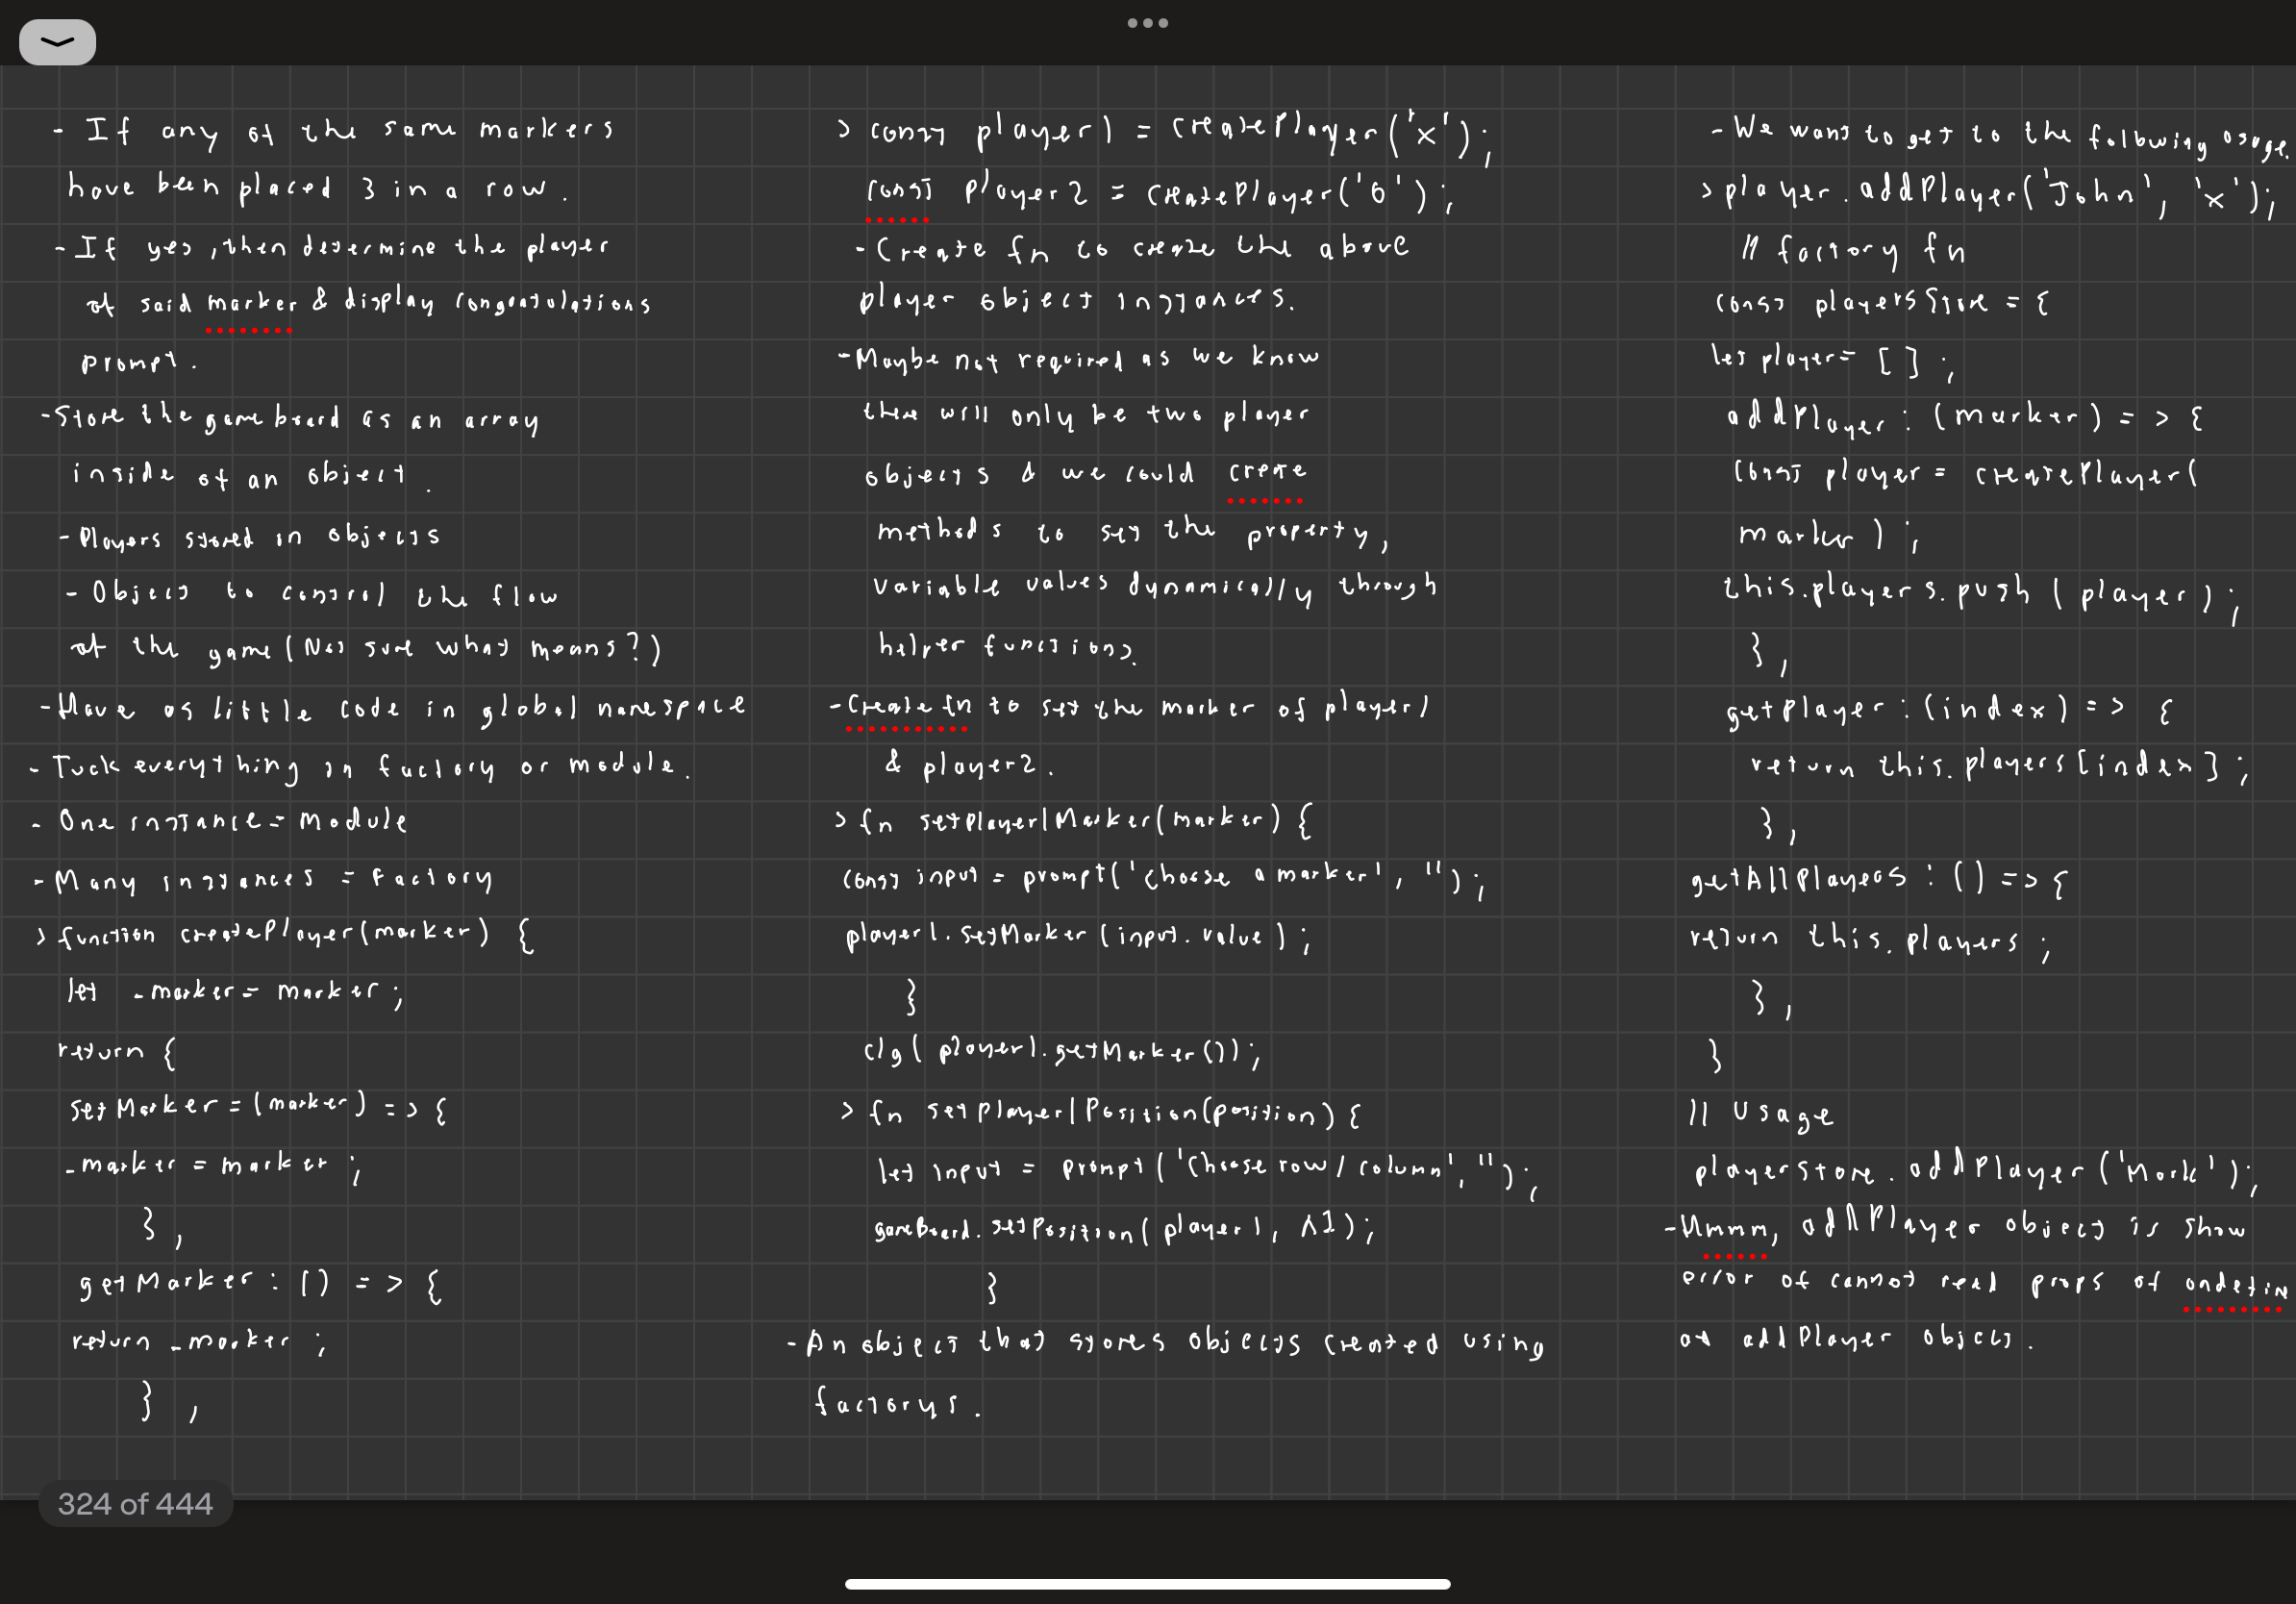 - If any of the same markers
have been placed 3 in a row.
- If yes, then determine the player
of said marker & display congratulations
prompt.
- Store the gameboard as an array
inside of an object.
- Players stored in objects
- Object to control the flow
of the game (Not sure what means?)
- Have as little code in global namespace
- Tuck everything in factory or module.
- One instance = Module
- Many instances = Factory
> function createPlayer(marker) {
let _marker = marker;
return {
setMarker = (marker) => {
_marker = marker;
},
getMarker: () => {
return _marker;
},
> const player1 = createPlayer('x');
const player2 = createPlayer('O');
- Create fn to create the above
player object instances.
- Maybe not required as we know
there will only be two player
objects & we could create
methods to set the property,
variable values dynamically through
helper functions.
- Create fn to set the marker of player1
& player2.
> fn setPlayer1Marker(marker) {
const input = prompt('choose a marker', '');
player1.setMarker(input.value);
}
clg(player1.getMarker());
> fn setPlayer1Position(position) {
let input = prompt('Choose row/column', '');
gameBoard.setPosition(player1, A1);
}
- An object that stores objects created using
factorys.
- We want to get to the following usage.
> player.addPlayer('John', 'x');
// factory fn
const playersStore = {
let player = [];
addPlayer: (marker) => {
const player = createPlayer(
marker);
this.players.push(player);
},
getPlayer: (index) => {
return this.players[index];
},
getAllPlayers: () => {
return this.players;
},
}
// Usage
playerstore.addPlayer('Mark');
- Hmmm, addPlayer object is show
error of cannot read props of undefin
at addPlayer object.
324 of 444